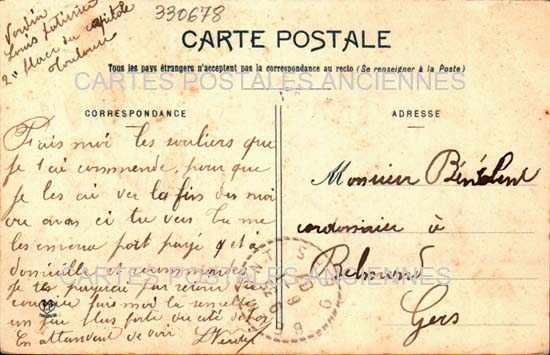 330678
Louis
2" place du capitole
Toulouse
CARTE POSTALE
Tous les pays étrangers n'acceptent pas la correspondance au recto (Se renseigner à la Poste)
CARTES POSTALES ANCIENNES
CORRESPONDANCE
ADRESSE
Fais moi les souliers que
je t'ai commendé, pour que
je les ai ver la fin du moi
ou avan ci tu veus tu me
les enverra port payé et à
domicille et recommandé
je te payerai au retour
fais moi la semelle
un peu plus forte du cité
En attendant de voir
Monsieur Bénéchent
cordonnier à
Belmond
Gers
CARTES POSTALES ANCIENNES
GERS